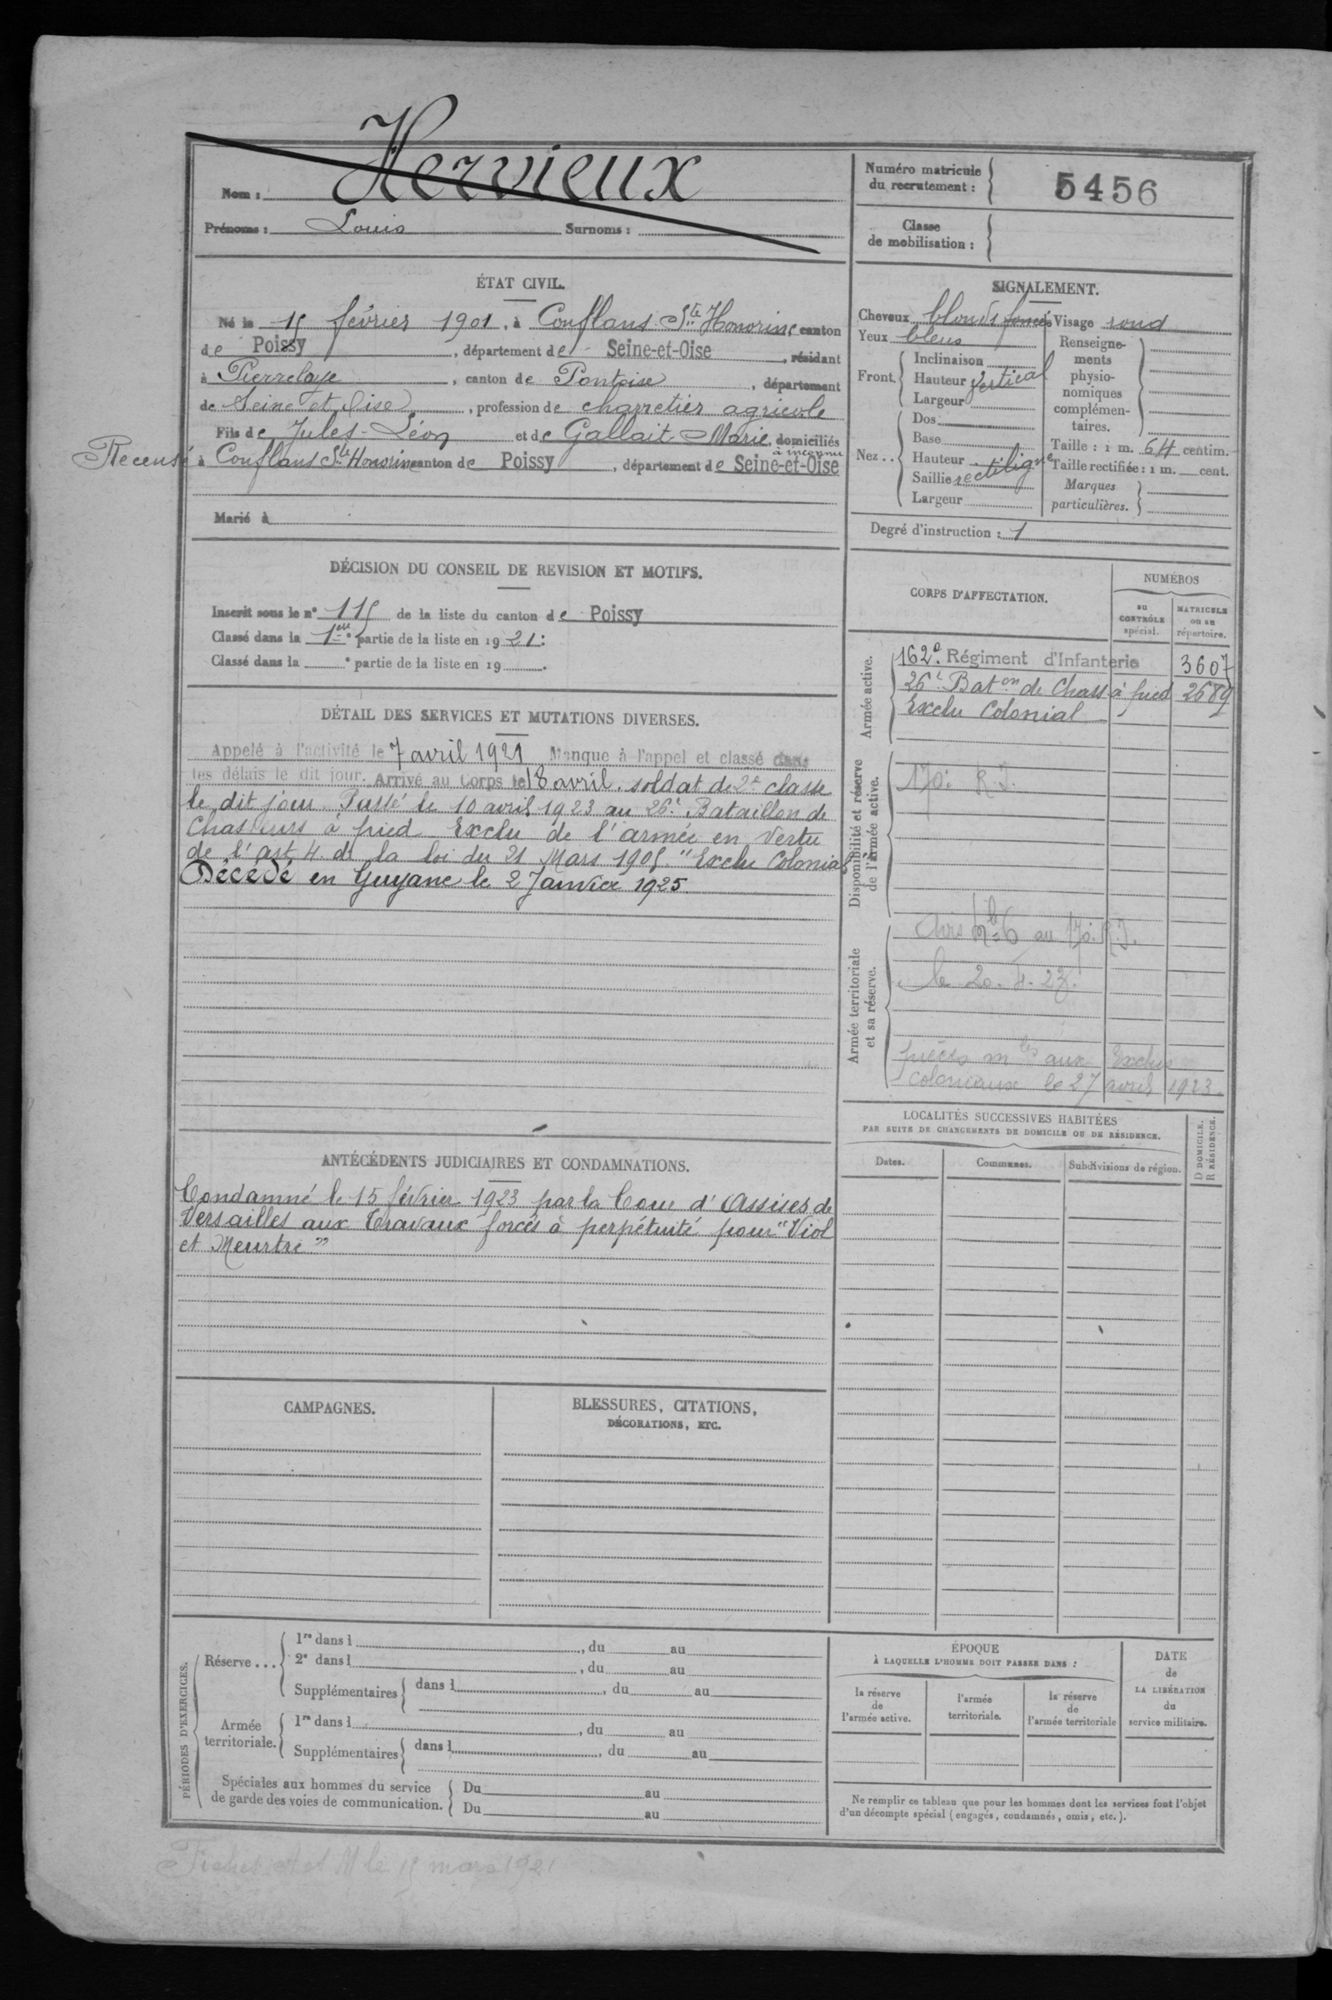 Nom : Hervieux
Prénoms : Louis Surnoms :
Numéro matricule
du recrutement : 5456
Classe
de mobilisation :
ÉTAT CIVIL.
Né le 15 février 1901, à Conflans Ste Honorine canton
de Poissy, département de Seine-et-Oise, résidant
à Pierrelaye, canton de Pontoise, département
de Seine et Oise, profession de charretier agricole
Fils de Jules-Léon et de Gallait Marie, domiciliés
à inconnu
Recensé à Conflans Ste Honorine canton de Poissy, département de Seine-et-Oise
Marié à
SIGNALEMENT.
Cheveux blonds foncés Visage rond
Yeux bleus
Front. Inclinaison
Hauteur vertical
Largeur
Nez.. Dos
Base
Hauteur
Saillie rectiligne
Largeur
Renseigne-
ments
physio-
nomiques
complémen-
taires.
Taille : 1 m. 64 centim.
Taille rectifiée : 1 m. cent.
Marques
particulières.
Degré d'instruction : 1
DÉCISION DU CONSEIL DE REVISION ET MOTIFS.
Inscrit sous le n° 115 de la liste du canton de Poissy
Classé dans la 1ère partie de la liste en 1921 :
Classé dans la e partie de la liste en 19 .
CORPS D'AFFECTATION.
NUMÉROS
au
CONTRÔLE
spécial.
MATRICULE
ou au
répertoire.
Armée active.
162e Régiment d'Infanterie 3607
26e Baton de Chass à pied 2689
Exclu Colonial
Disponibilité et réserve
de l'armée active.
170e R.I.
Armée territoriale
et sa réserve.
au 170e R.I.
le 20.4.23.
pièces mles aux Exclus
coloniaux le 27 avril 1923.
DÉTAIL DES SERVICES ET MUTATIONS DIVERSES.
Appelé à l'activité le 7 avril 1921 Manque à l'appel et classé dans
les délais le dit jour. Arrivé au Corps le 8 avril. soldat de 2e classe
le dit jour. Passé le 10 avril 1923 au 26e Bataillon de
Chasseurs à pied. Exclu de l'armée en vertu
de l'art. 4 de la loi du 21 Mars 1905. "Exclu Colonial"
Décédé en Guyane le 2 Janvier 1925.
ANTÉCÉDENTS JUDICIAIRES ET CONDAMNATIONS.
Condamné le 15 février 1923 par la Cour d'Assises de
Versailles aux Travaux forcés à perpétuité pour "Viol
et Meurtre"
LOCALITÉS SUCCESSIVES HABITÉES
PAR SUITE DE CHANGEMENTS DE DOMICILE OU DE RÉSIDENCE.
Dates.
Communes.
Subdivisions de région.
D DOMICILE.
R RÉSIDENCE.
CAMPAGNES.
BLESSURES, CITATIONS,
DÉCORATIONS, ETC.
PÉRIODES D'EXERCICES.
Réserve... 1re dans l , du au
2e dans l , du au
Supplémentaires dans l , du au
Armée
territoriale. 1re dans l , du au
Supplémentaires dans l , du au
Spéciales aux hommes du service
de garde des voies de communication.
Du au
Du au
ÉPOQUE
À LAQUELLE L'HOMME DOIT PASSER DANS :
la réserve
de
l'armée active.
l'armée
territoriale.
la réserve
de
l'armée territoriale
DATE
de
LA LIBÉRATION
du
service militaire.
Ne remplir ce tableau que pour les hommes dont les services font l'objet
d'un décompte spécial (engagés, condamnés, omis, etc.).
Fiches A et M le 15 mars 1921